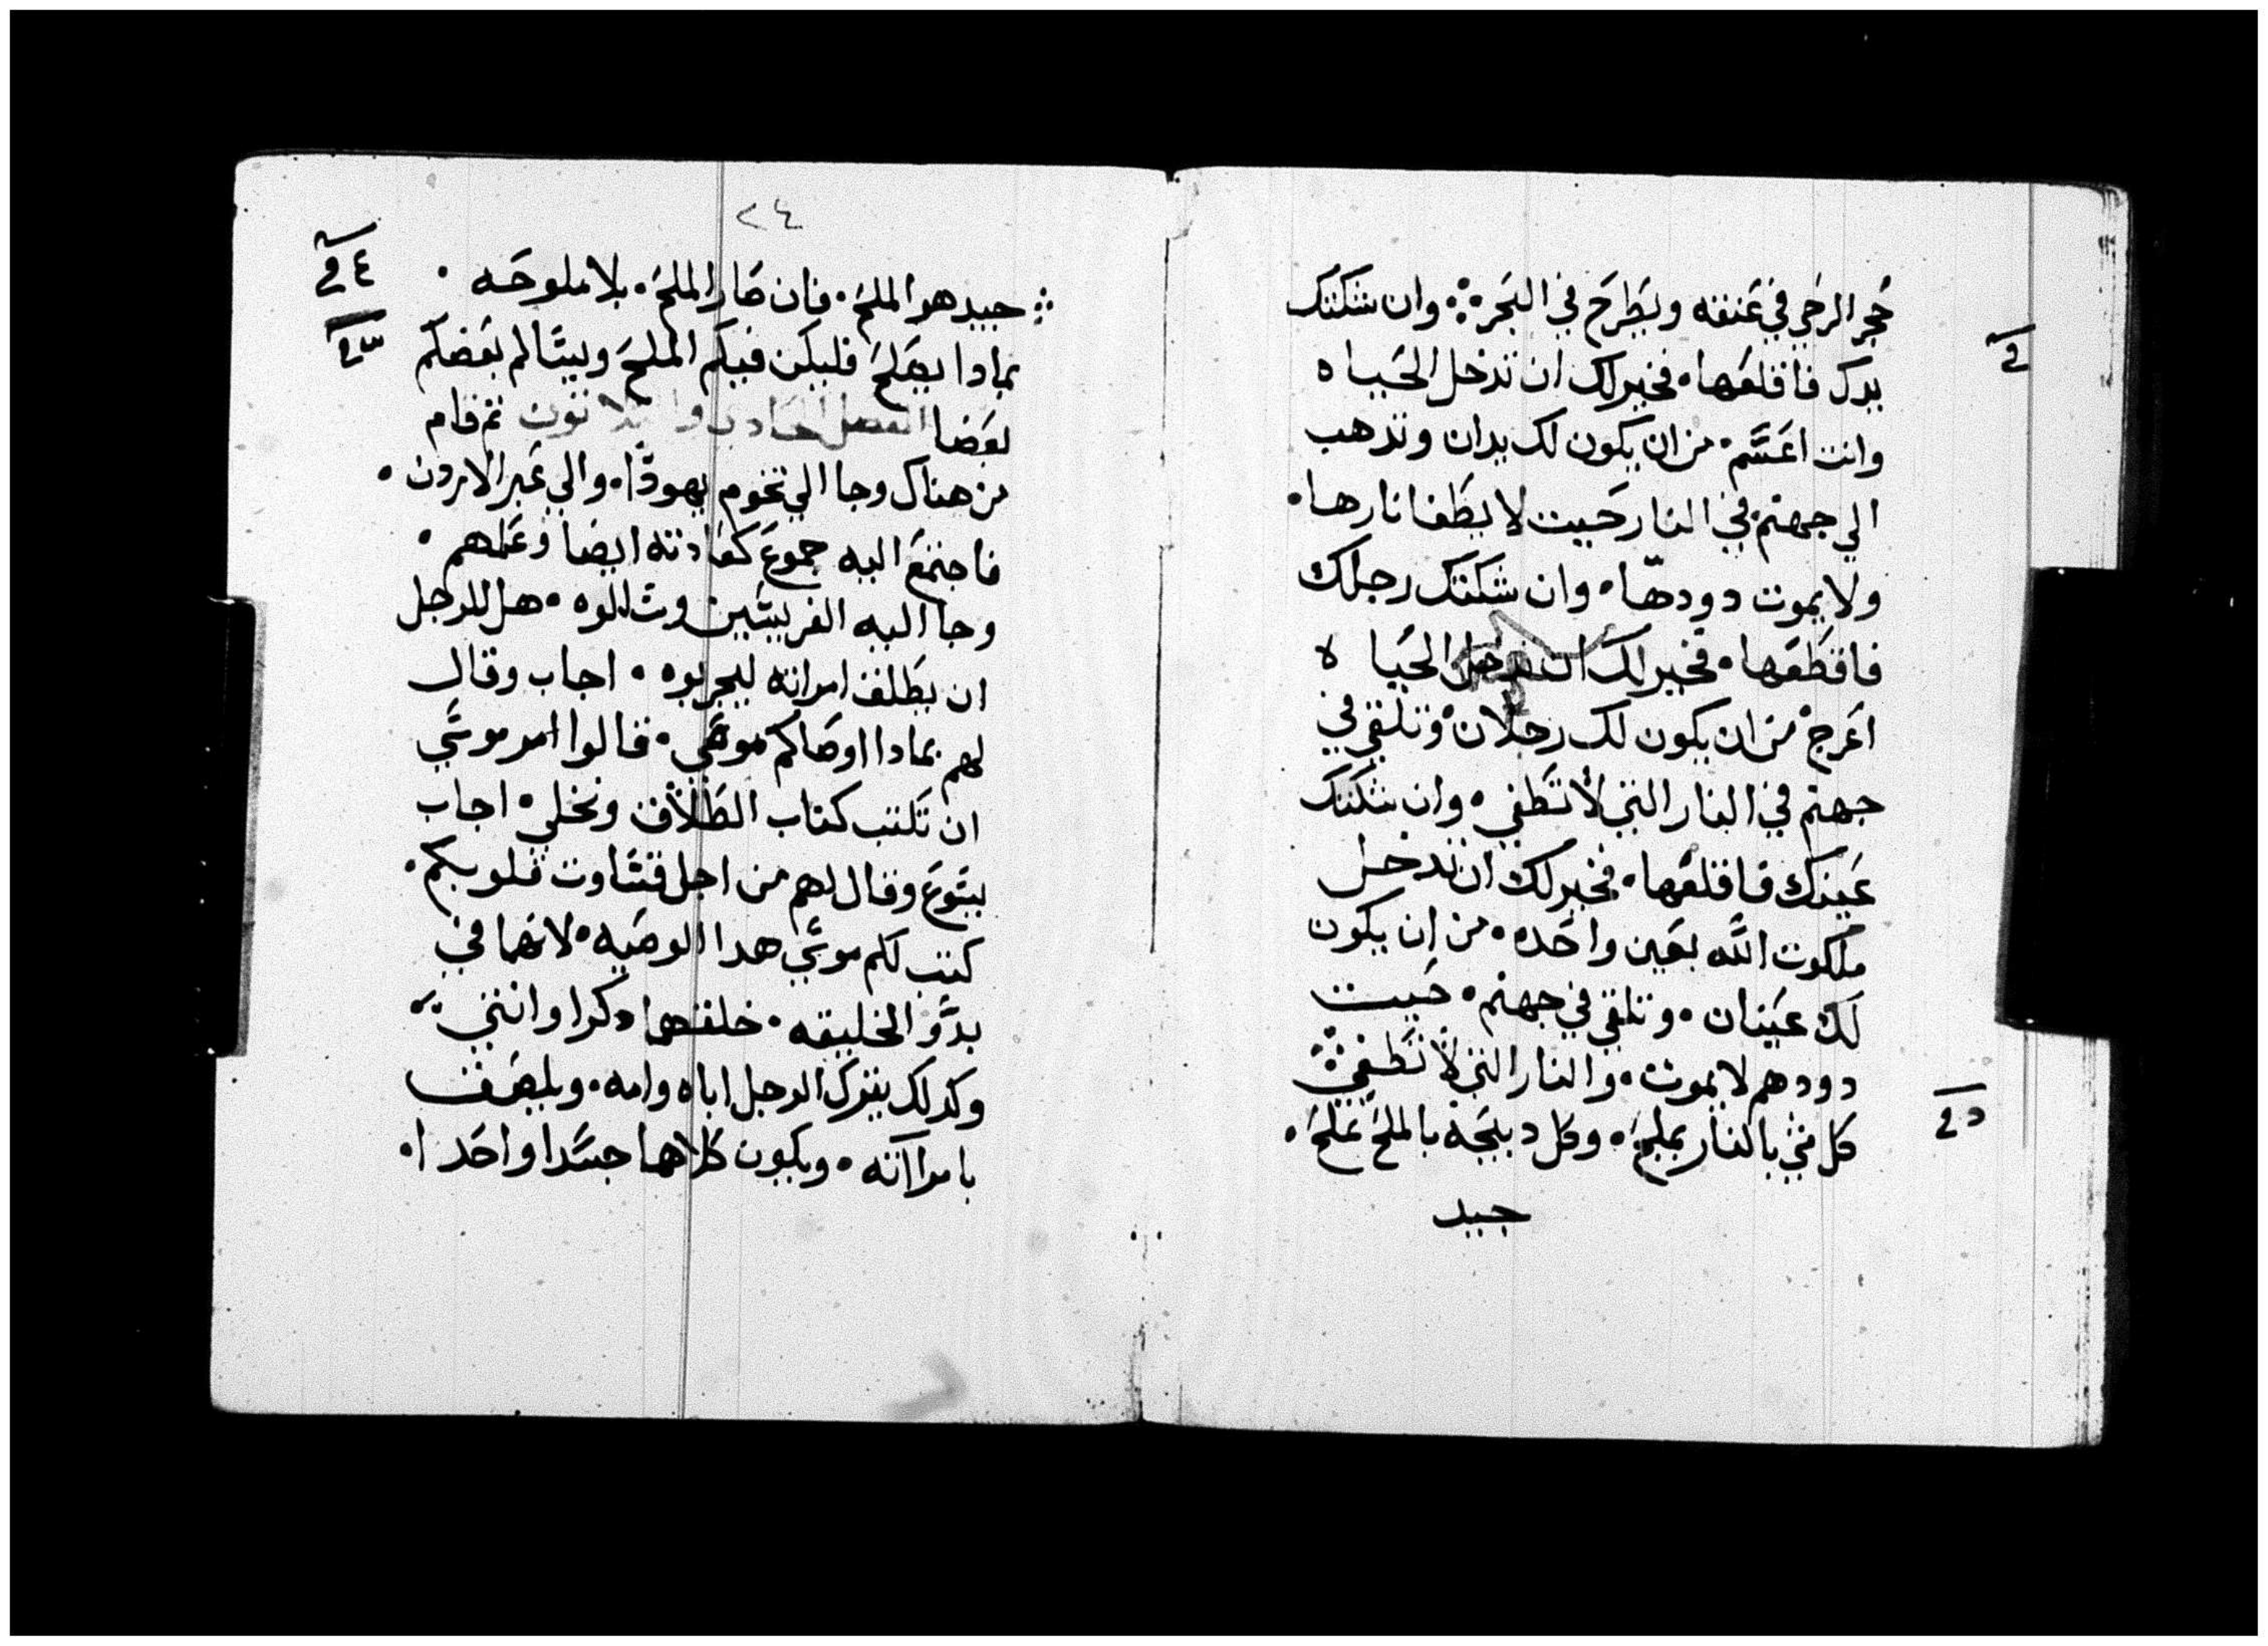 حجر الرحي في عنقه ويطرح في البحر ⁘ وان شككتك
يدك فاقلعها • فخير لك ان تدخل الحياه
وانت اعسم • من ان يكون لك يدان وتدهب
الي جهنم في النار حيت لا يطفا نارها •
ولا يموت دودها • وان شككتك رجلك
فاقطعها • فخير لك ان تدخل الحياه
اعرج • من ان يكون لك رجلان • وتلقي في
جهنم في النار التي لا تطفي • وان شككتك
عينك فاقلعها • فخير لك ان تدخل
ملكوت الله بعين واحده • من ان يكون
لك عينان • وتلقي في جهنم • حيت
دودهم لا يموت • والنار التي لا تطفي ⁘
كل شي بالنار يملح • وكل دبيحه بالملح تملح •
جيد
٢٤
⁘ جيد هو الملح • فان صار الملح • بلا ملوحه •
بمادا يصلح فليكن فيكم الملح ويسالم بعضكم
بعضا الفصل الحادي والتلاتون تم قام
من هناك وجا الي تخوم يهودا • والي عبر الاردن •
فاجتمع اليه جموع كعادته ايضا وعلمهم •
وجا اليه الفريسين وسالوه • هل للرجل
ان يطلق امراته ليجربوه • اجاب وقال
لهم بمادا اوصاكم موسي • قالوا امر موسي
ان تكتب كتاب الطلاق وتخلي • اجاب
يسوع وقال لهم من اجل قساوت قلوبكم •
كتب لكم موسي هدا الوصيه • لانهما في
بدو الخليقه • خلقهما دكرا وانتي
وكدلك يترك الرجل اباه وامه • ويلصق
بامراته • ويكون كلاهما جسدا واحدا •